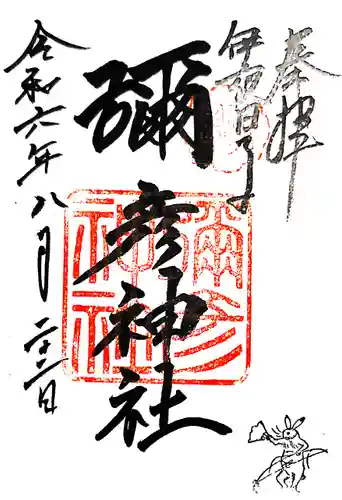 奉拝
伊夜日子
彌彦神社
令和六年八月二十二日
彌彦
神社